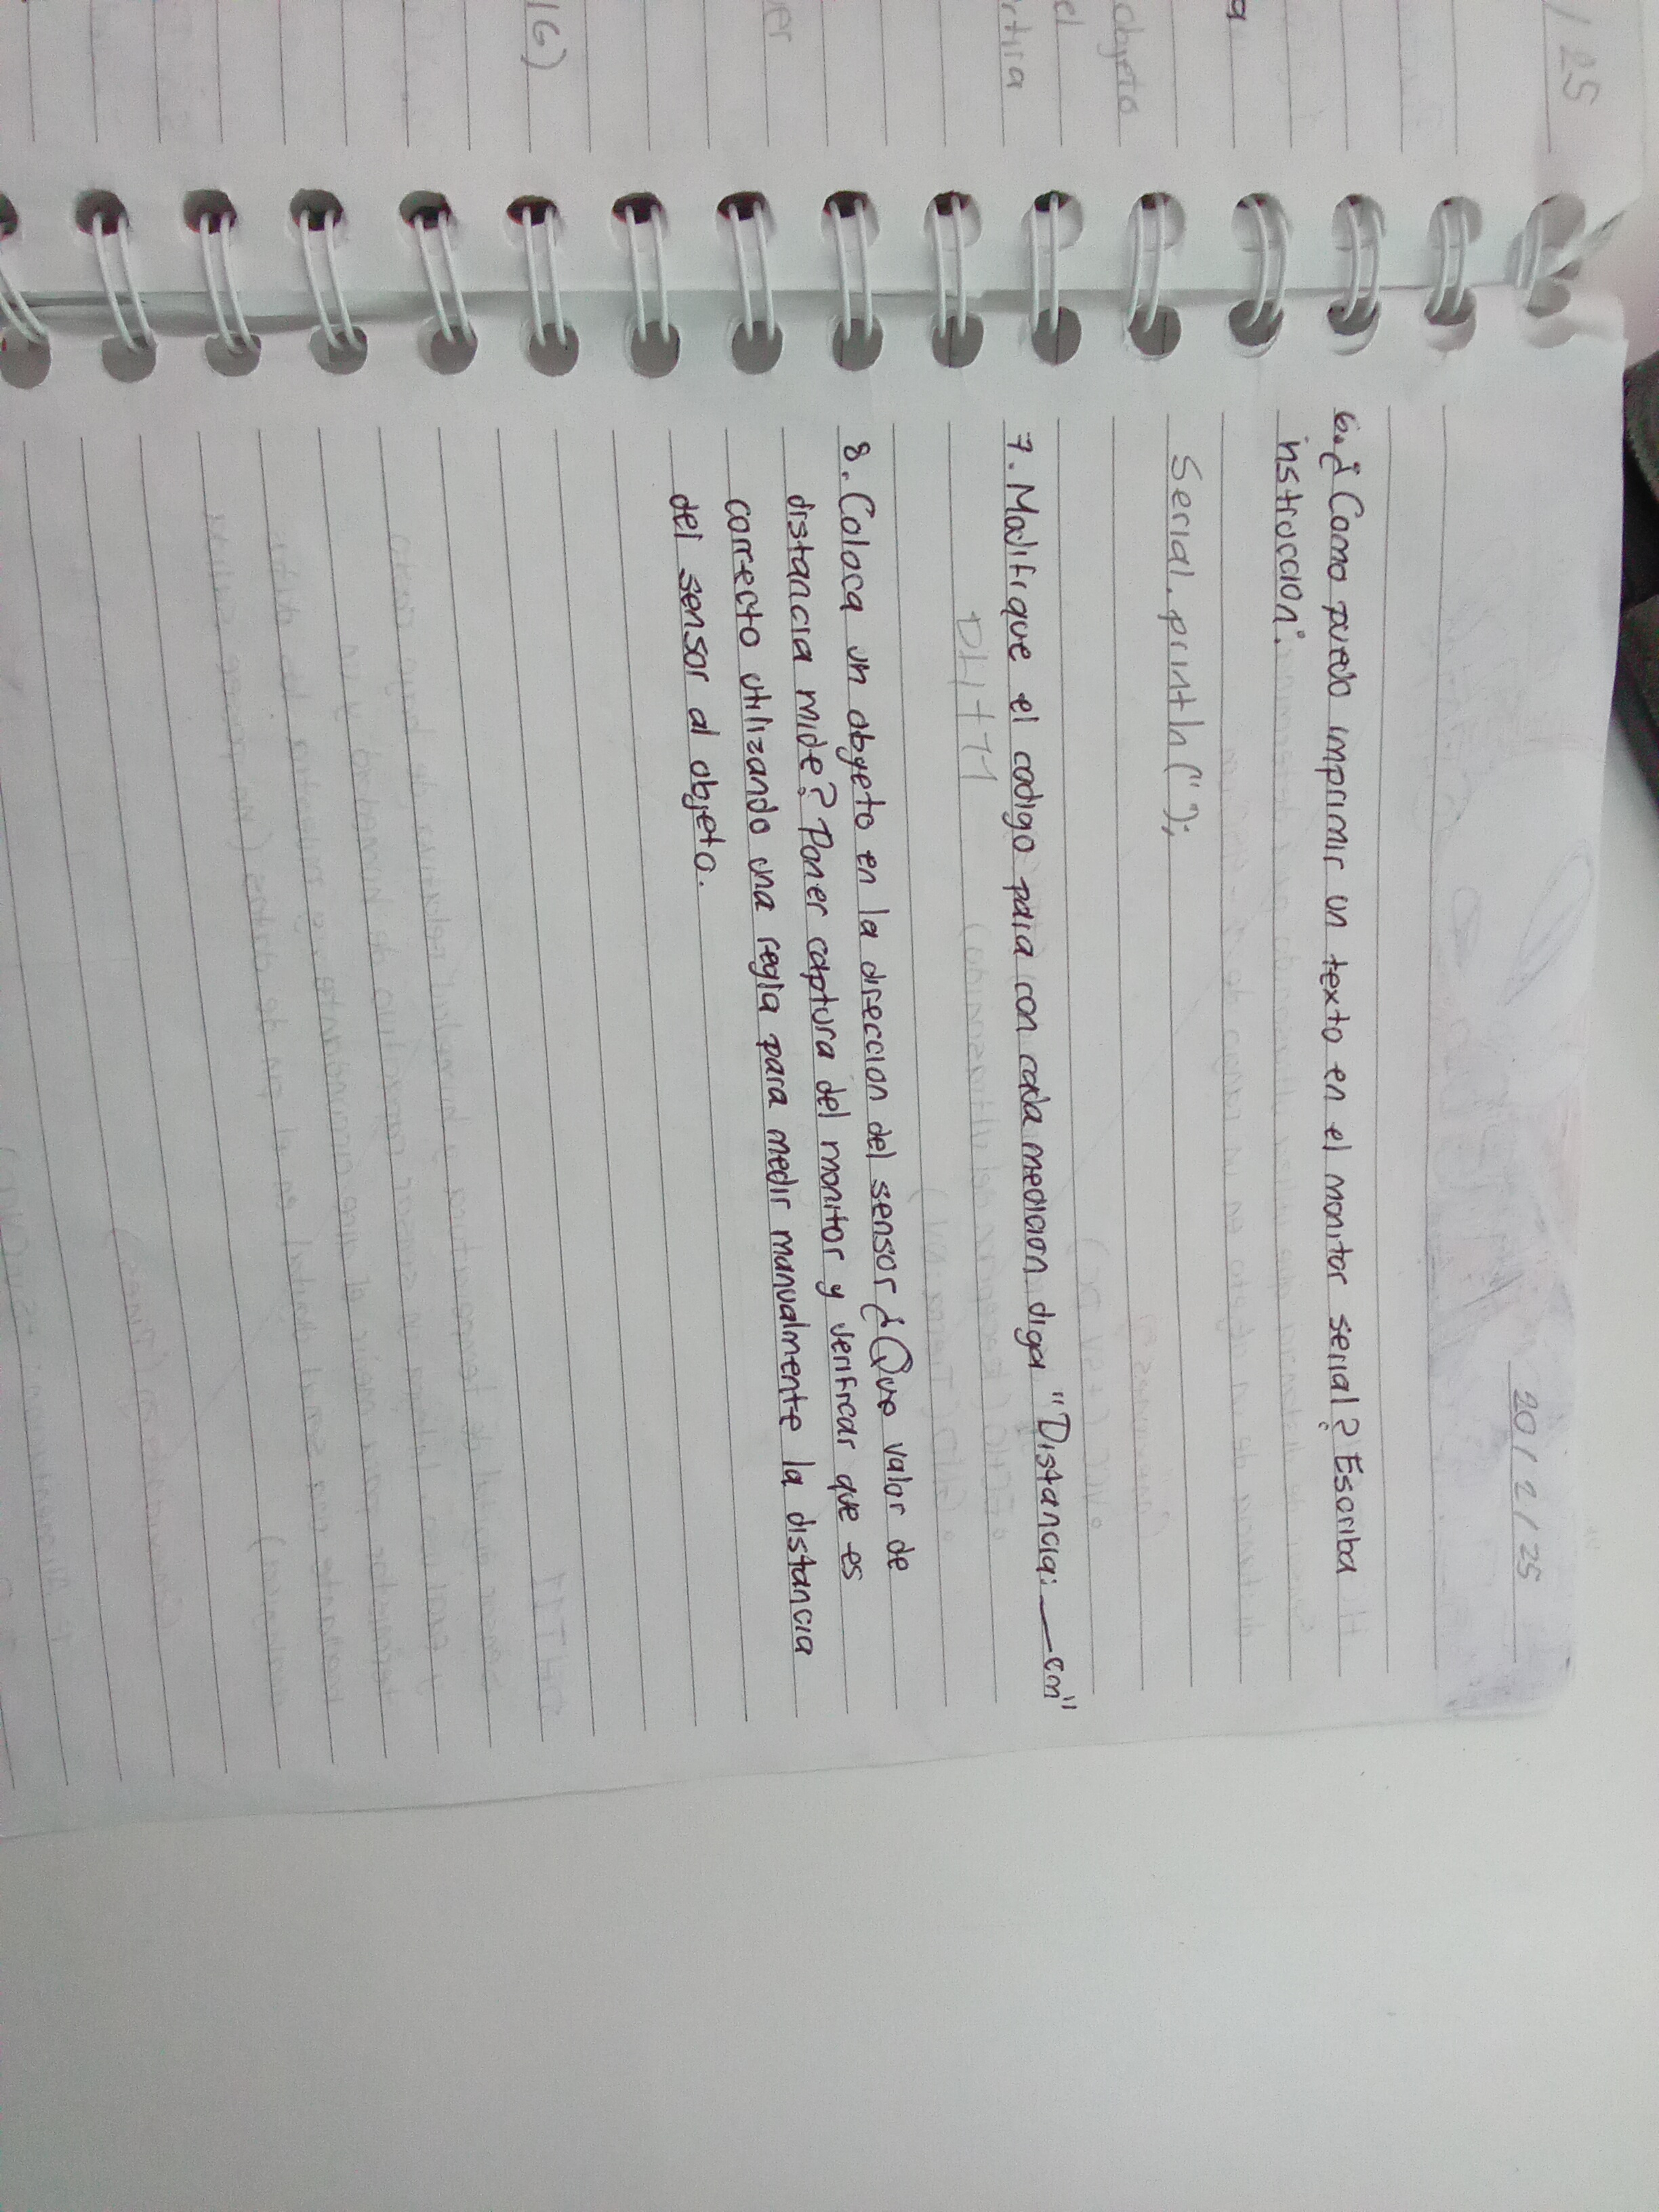 / 25
a
objeto
el
rtira
er
16)
20/ 2/ 25
6.¿Como puedo imprimir un texto en el monitor serial? Escriba
instruccion:
Serial.println(" ");
7. Modifique el codigo para con cada medicion diga "Distancia: __cm"
8. Coloca un objeto en la direccion del sensor ¿Que valor de
distancia mide? Poner captura del monitor y verificar que es
correcto utilizando una regla para medir manualmente la distancia
del sensor al objeto.